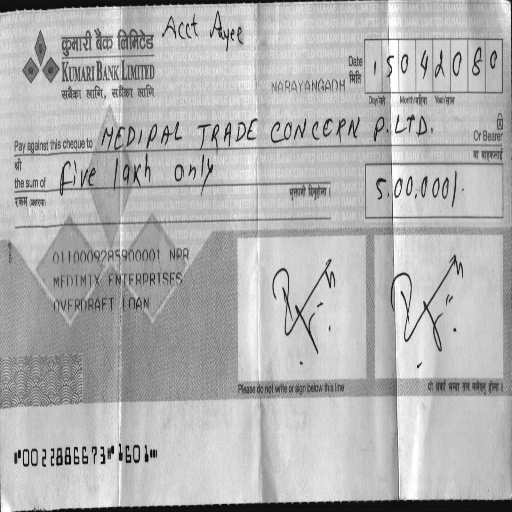 Acct Ayee
कुमारी बैंक लिमिटेड
KUMARI BANK LIMITED
सबैका लागि, सधैंका लागि
NARAYANGADH
Date
मिति
15042080
Day/गते Month/महिना Year/साल
Pay against this cheque to MEDIPAL TRADE CONCERN P. LTD. Or Bearer
श्री
वा वाहकलाई
the sum of five lakh only
रकम (अक्षरमा)
भुक्तानी दिनुहोला ।
5,00,000/.
0110009285900001 NPR
MEDIMIX ENTERPRISES
OVERDRAFT LOAN
Please do not write or sign below this line
⑈0022886673⑈ 1601⑈